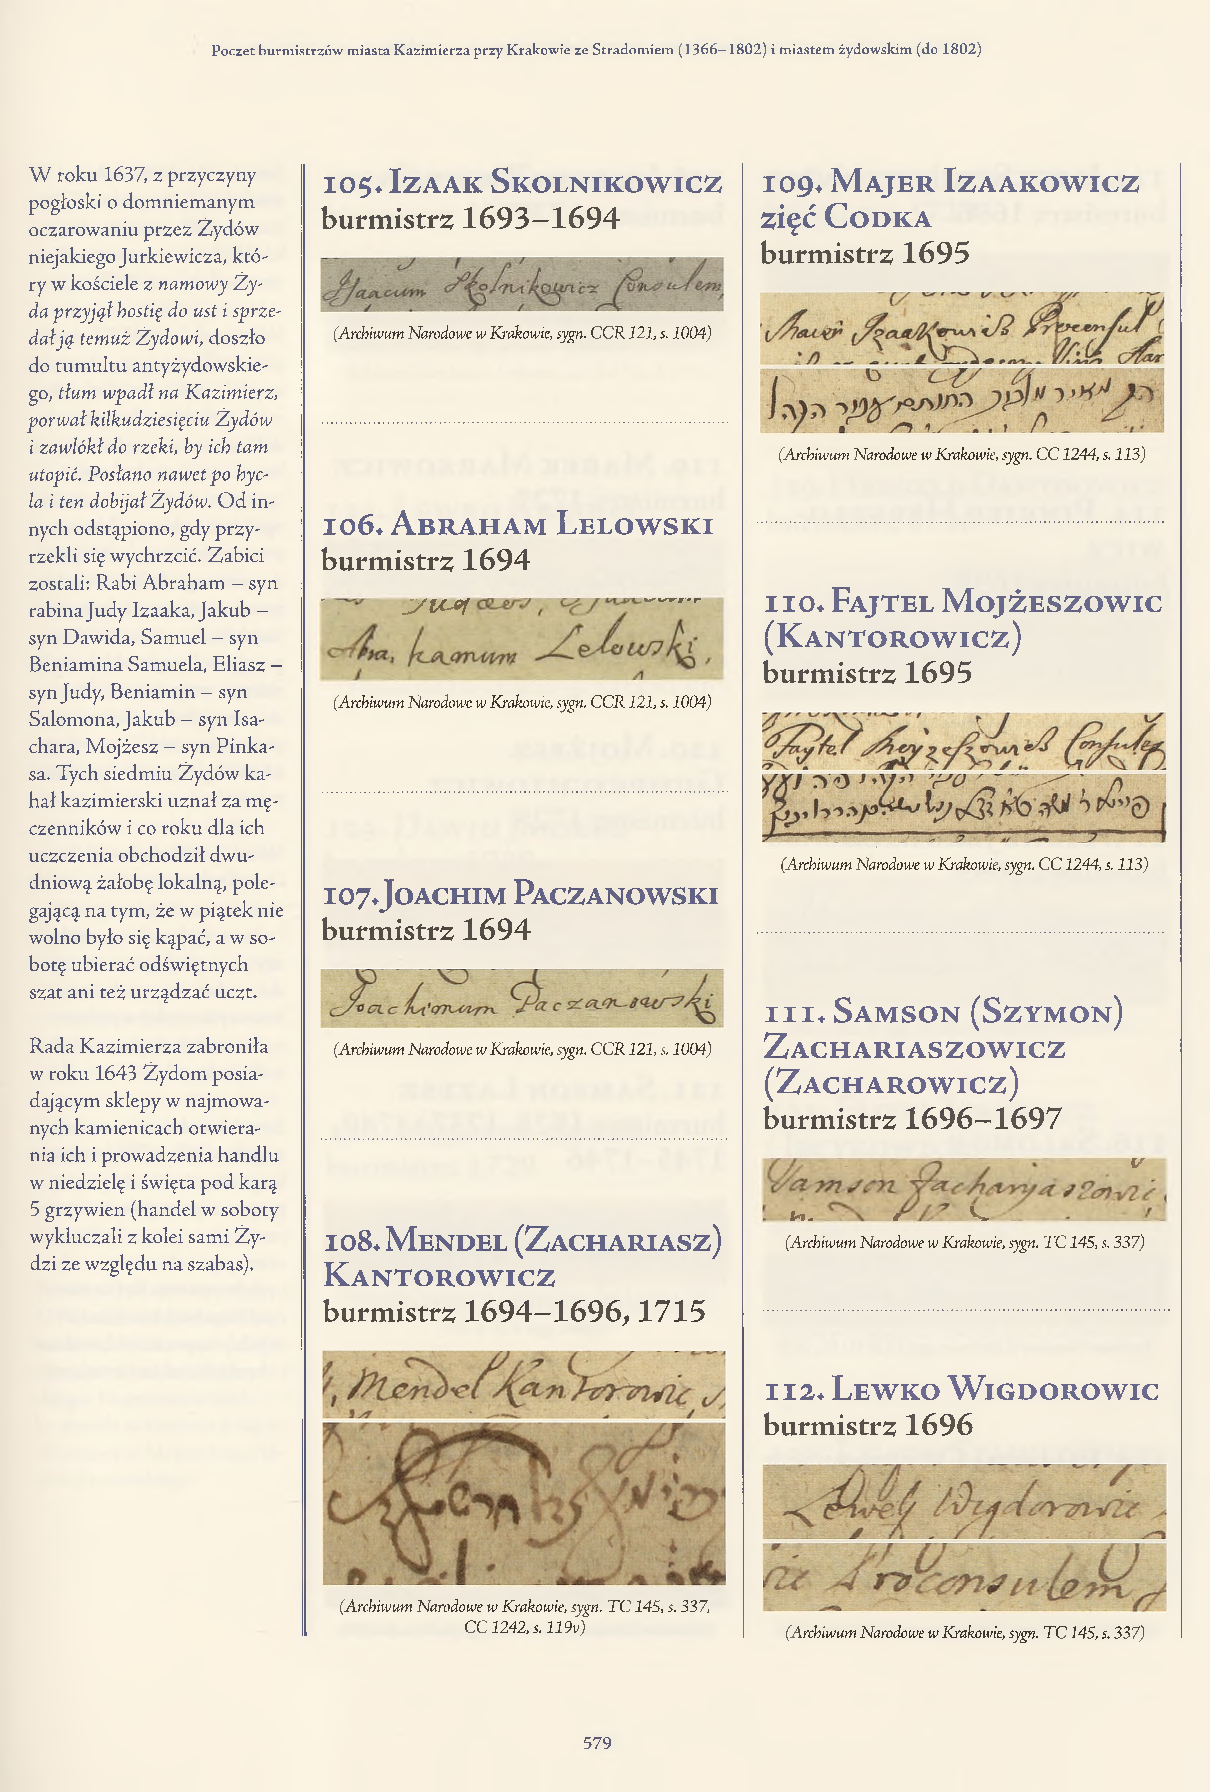 Poczet burmistrzów miasta Kazimierza przy Krakowie ze Stradomiem (1366–1802) i miastem żydowskim (do 1802)
W roku 1637, z przyczyny
pogłoski o domniemanym
oczarowaniu przez Żydów
niejakiego Jurkiewicza, któ-
ry w kościele z namowy Ży-
da przyjął hostię do ust i sprze-
dał ją temuż Żydowi, doszło
do tumultu antyżydowskie-
go, tłum wpadł na Kazimierz,
porwał kilkudziesięciu Żydów
i zawlókł do rzeki, by ich tam
utopić. Posłano nawet po hyc-
la i ten dobijał Żydów. Od in-
nych odstąpiono, gdy przy-
rzekli się wychrzcić. Zabici
zostali: Rabi Abraham – syn
rabina Judy Izaaka, Jakub –
syn Dawida, Samuel – syn
Beniamina Samuela, Eliasz –
syn Judy, Beniamin – syn
Salomona, Jakub – syn Isa-
chara, Mojżesz – syn Pinka-
sa. Tych siedmiu Żydów ka-
hał kazimierski uznał za mę-
czenników i co roku dla ich
uczczenia obchodził dwu-
dniową żałobę lokalną, pole-
gającą na tym, że w piątek nie
wolno było się kąpać, a w so-
botę ubierać odświętnych
szat ani też urządzać uczt.
Rada Kazimierza zabroniła
w roku 1643 Żydom posia-
dającym sklepy w najmowa-
nych kamienicach otwiera-
nia ich i prowadzenia handlu
w niedzielę i święta pod karą
5 grzywien (handel w soboty
wykluczali z kolei sami Ży-
dzi ze względu na szabas).
105. Izaak Skolnikowicz
burmistrz 1693–1694
Isaacum Skolnikowicz Consulem,
(Archiwum Narodowe w Krakowie, sygn. CCR 121, s. 1004)
106. Abraham Lelowski
burmistrz 1694
Abrahamum Lelowski,
(Archiwum Narodowe w Krakowie, sygn. CCR 121, s. 1004)
107. Joachim Paczanowski
burmistrz 1694
Joachimum Paczanowski
(Archiwum Narodowe w Krakowie, sygn. CCR 121, s. 1004)
108. Mendel (Zachariasz)
Kantorowicz
burmistrz 1694–1696, 1715
Mendel Kantorowic
(Archiwum Narodowe w Krakowie, sygn. TC 145, s. 337,
CC 1242, s. 119v)
109. Majer Izaakowicz
zięć Codka
burmistrz 1695
Izaakowicz Proconsul
(Archiwum Narodowe w Krakowie, sygn. CC 1244, s. 113)
110. Fajtel Mojżeszowic
(Kantorowicz)
burmistrz 1695
Faytel Moyzeszowicz Consules
(Archiwum Narodowe w Krakowie, sygn. CC 1244, s. 113)
111. Samson (Szymon)
Zachariaszowicz
(Zacharowicz)
burmistrz 1696–1697
Samson Zacharyaszowic
(Archiwum Narodowe w Krakowie, sygn. TC 145, s. 337)
112. Lewko Wigdorowic
burmistrz 1696
Wigdorowic
Proconsulem
(Archiwum Narodowe w Krakowie, sygn. TC 145, s. 337)
579